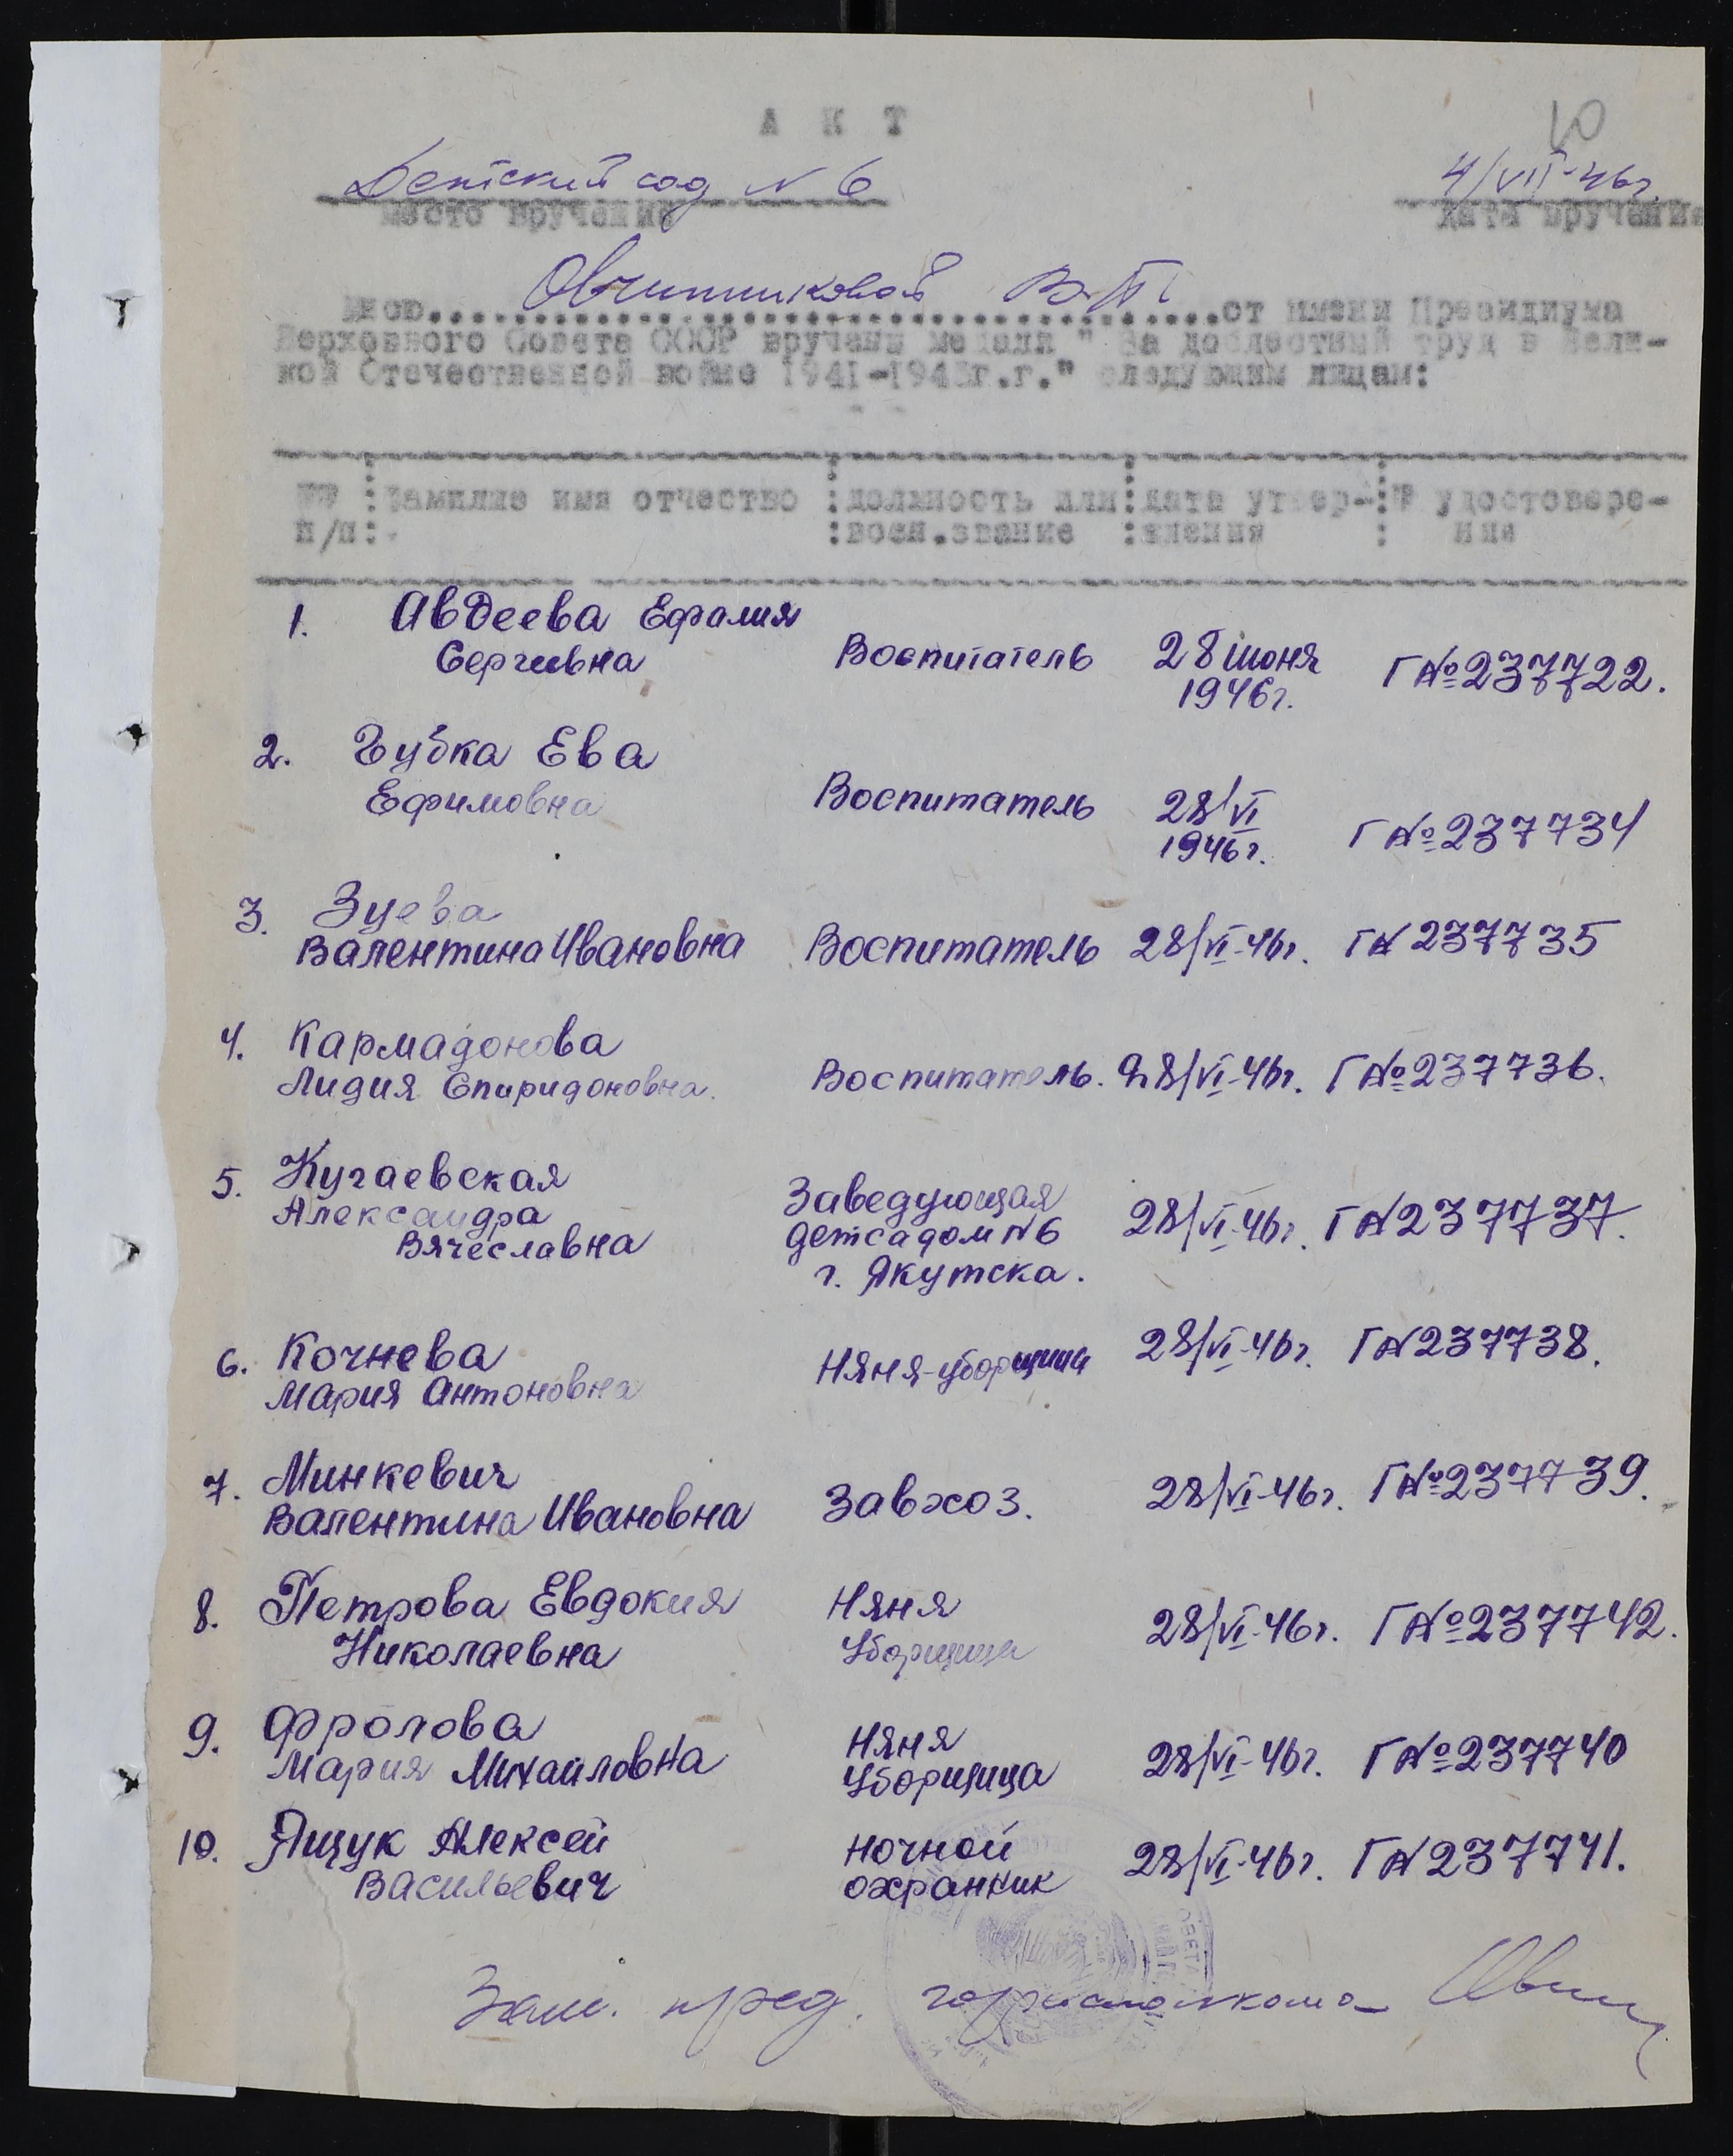 10
А К Т
Детский сад N 6
4/VII-46г.
место вручения
дата вручения
Овчинниковой В.П.
мною........................................от имени Президиума
Верховного Совета СССР вручены медали " За доблестный труд в Вели-
кой Отечественной войне 1941-1945г.г." следующим лицам:
№№ :фамилие имя отчество :должность или:дата утвер-:№ удостовере-
п/п: :воен.звание :ждения : ние
1. Авдеева Ефалия
Сергивна Воспитатель 28 июня 1946г. Г №237722.
2. Губка Ева
Ефимовна Воспитатель 28/VI 1946г. Г №237734
3. Зуева
Валентина Ивановна Воспитатель 28/VI-46г. Г N 237735
4. Кармадонова
Лидия Спиридоновна. Воспитатель. 28/VI-46г. Г №237736.
5. Кугаевская
Александра
Вячеславна
Заведующая
детсадом N6
г. Якутска.
28/VI-46г. Г N 237737.
6. Кочнева
Мария Антоновна Няня-уборщица 28/VI-46г. Г N 237738.
7. Минкевич
Валентина Ивановна Завхоз. 28/VI-46г. Г №237739.
8. Петрова Евдокия
Николаевна
Няня
Уборщица
28/VI-46г. Г №237742.
9. Фролова
Мария Михайловна
Няня
Уборщица
28/VI-46г. Г №237740
10. Ящук Алексей
Васильевич
ночной
охранник
28/VI-46г. Г N 237741.
Зам. пред. горисполкома